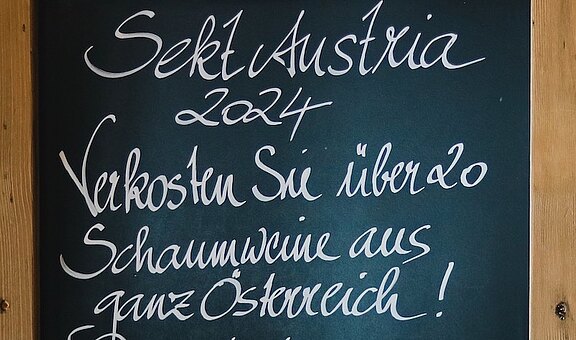 Sekt Austria
2024
Verkosten Sie über 20
Schaumweine aus
ganz Österreich!